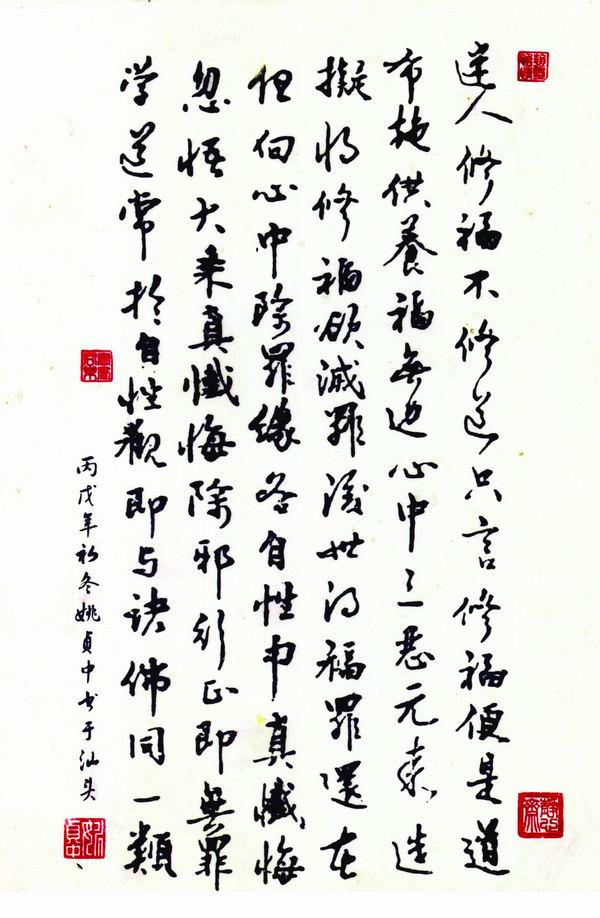 迷人修福不修道只言修福便是道
布施供養福無边心中三惡元来造
擬将修福欲滅罪後世得福罪還在
但向心中除罪緣各自性中真懺悔
忽悟大乘真懺悔除邪行正即無罪
学道常於自性觀即与諸佛同一類
丙戌年初冬姚貞中书于汕头